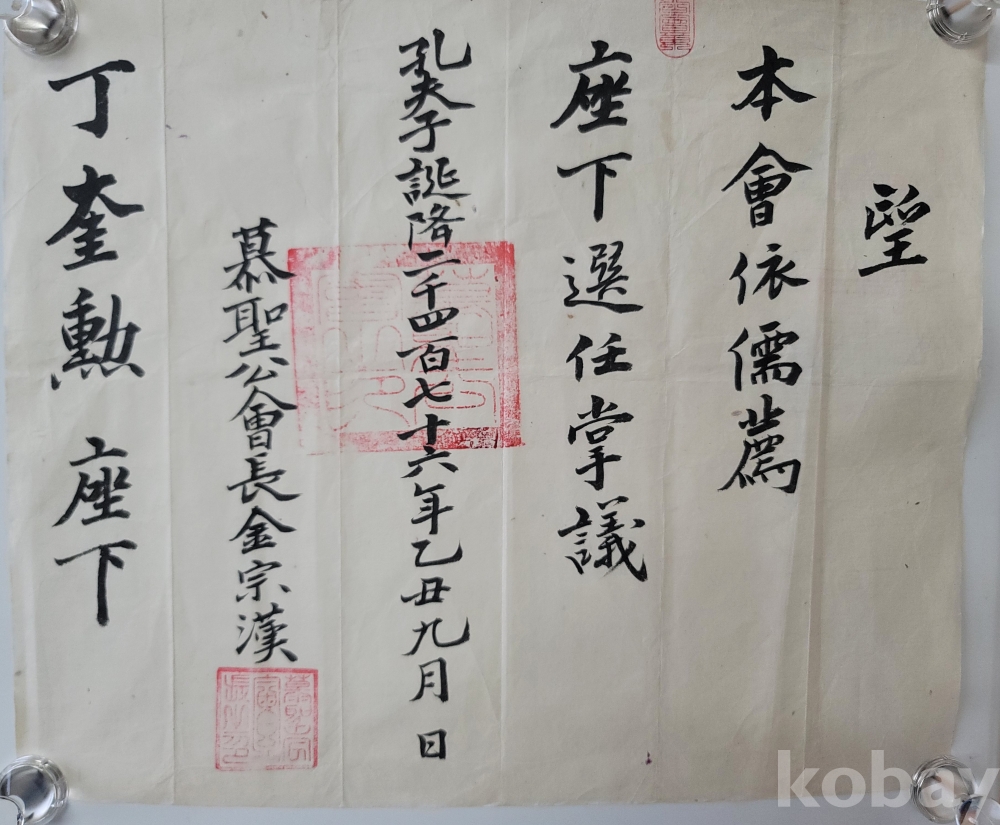 望
本會依儒薦
座下選任掌議
孔夫子誕降二千四百七十六年乙丑九月 日
慕聖公會長金宗漢
丁奎勳 座下
kobay